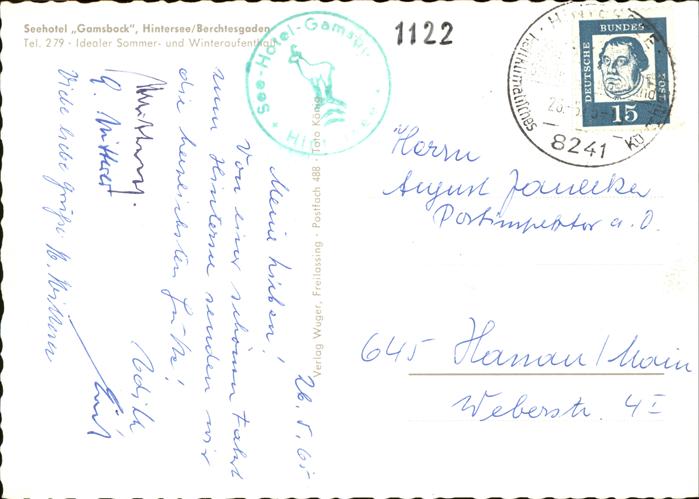 Seehotel „Gamsbock", Hintersee/Berchtesgaden
Tel. 279 · Idealer Sommer- und Winteraufenthalt
See-Hotel-Gamsbock
Hintersee
1122
DEUTSCHE BUNDESPOST
15
8241
26. 5. 65
Meine Lieben!
Von einer schönen Fahrt
zum Hintersee senden wir
die herzlichsten Grüße!
Edith
Viele liebe Grüße
Verlag Wuger, Freilassing · Postfach 488 · Foto König
Herrn
August Janecker
Postinspektor a. D.
645 Hanau/Main
Weberstr. 4 I